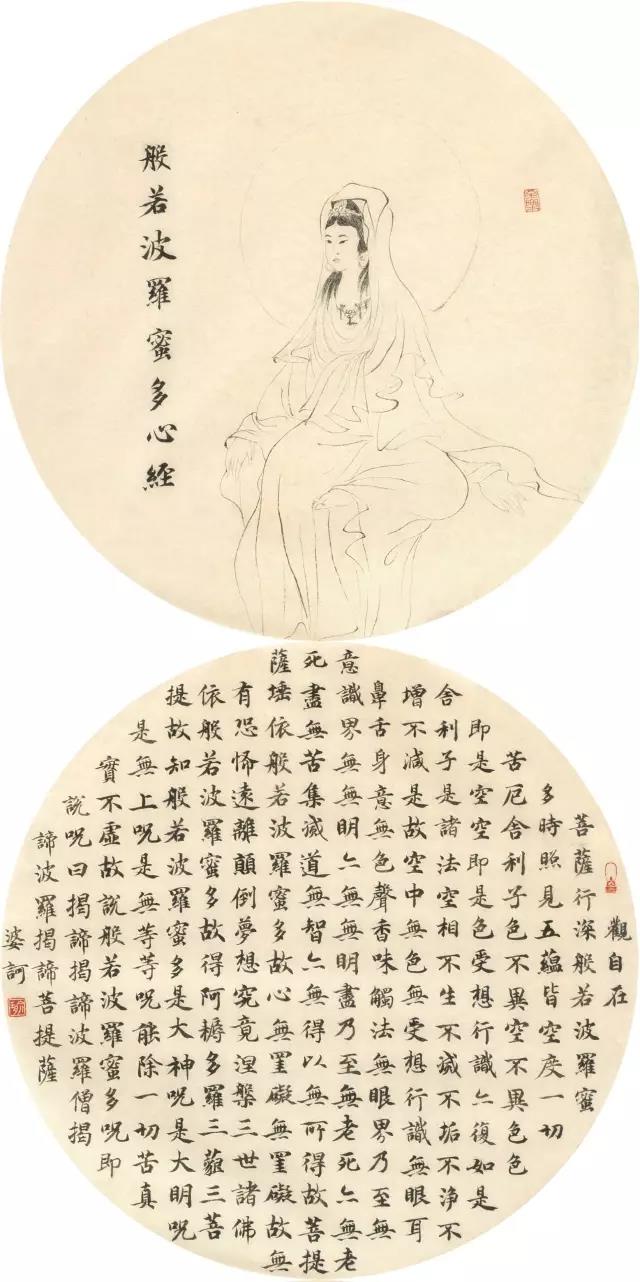 般若波羅蜜多心經
觀自在
菩薩行深般若波羅蜜
多時照見五蘊皆空度一切
苦厄舍利子色不異空不異色色
即是空空即是色受想行識亦復如是
舍利子是諸法空相不生不滅不垢不淨不
增不減是故空中無色無受想行識無眼耳
鼻舌身意無色聲香味觸法無眼界乃至無
意識界無無明亦無無明盡乃至無老死亦無老
死盡無苦集滅道無智亦無得以無所得故菩提
薩埵依般若波羅蜜多故心無罣礙無罣礙故無
有恐怖遠離顛倒夢想究竟涅槃三世諸佛
依般若波羅蜜多故得阿耨多羅三藐三菩
提故知般若波羅蜜多是大神呪是大明呪
是無上呪是無等等呪能除一切苦真
實不虛故說般若波羅蜜多呪即
說呪曰揭諦揭諦波羅僧揭
諦波羅揭諦菩提薩
婆訶